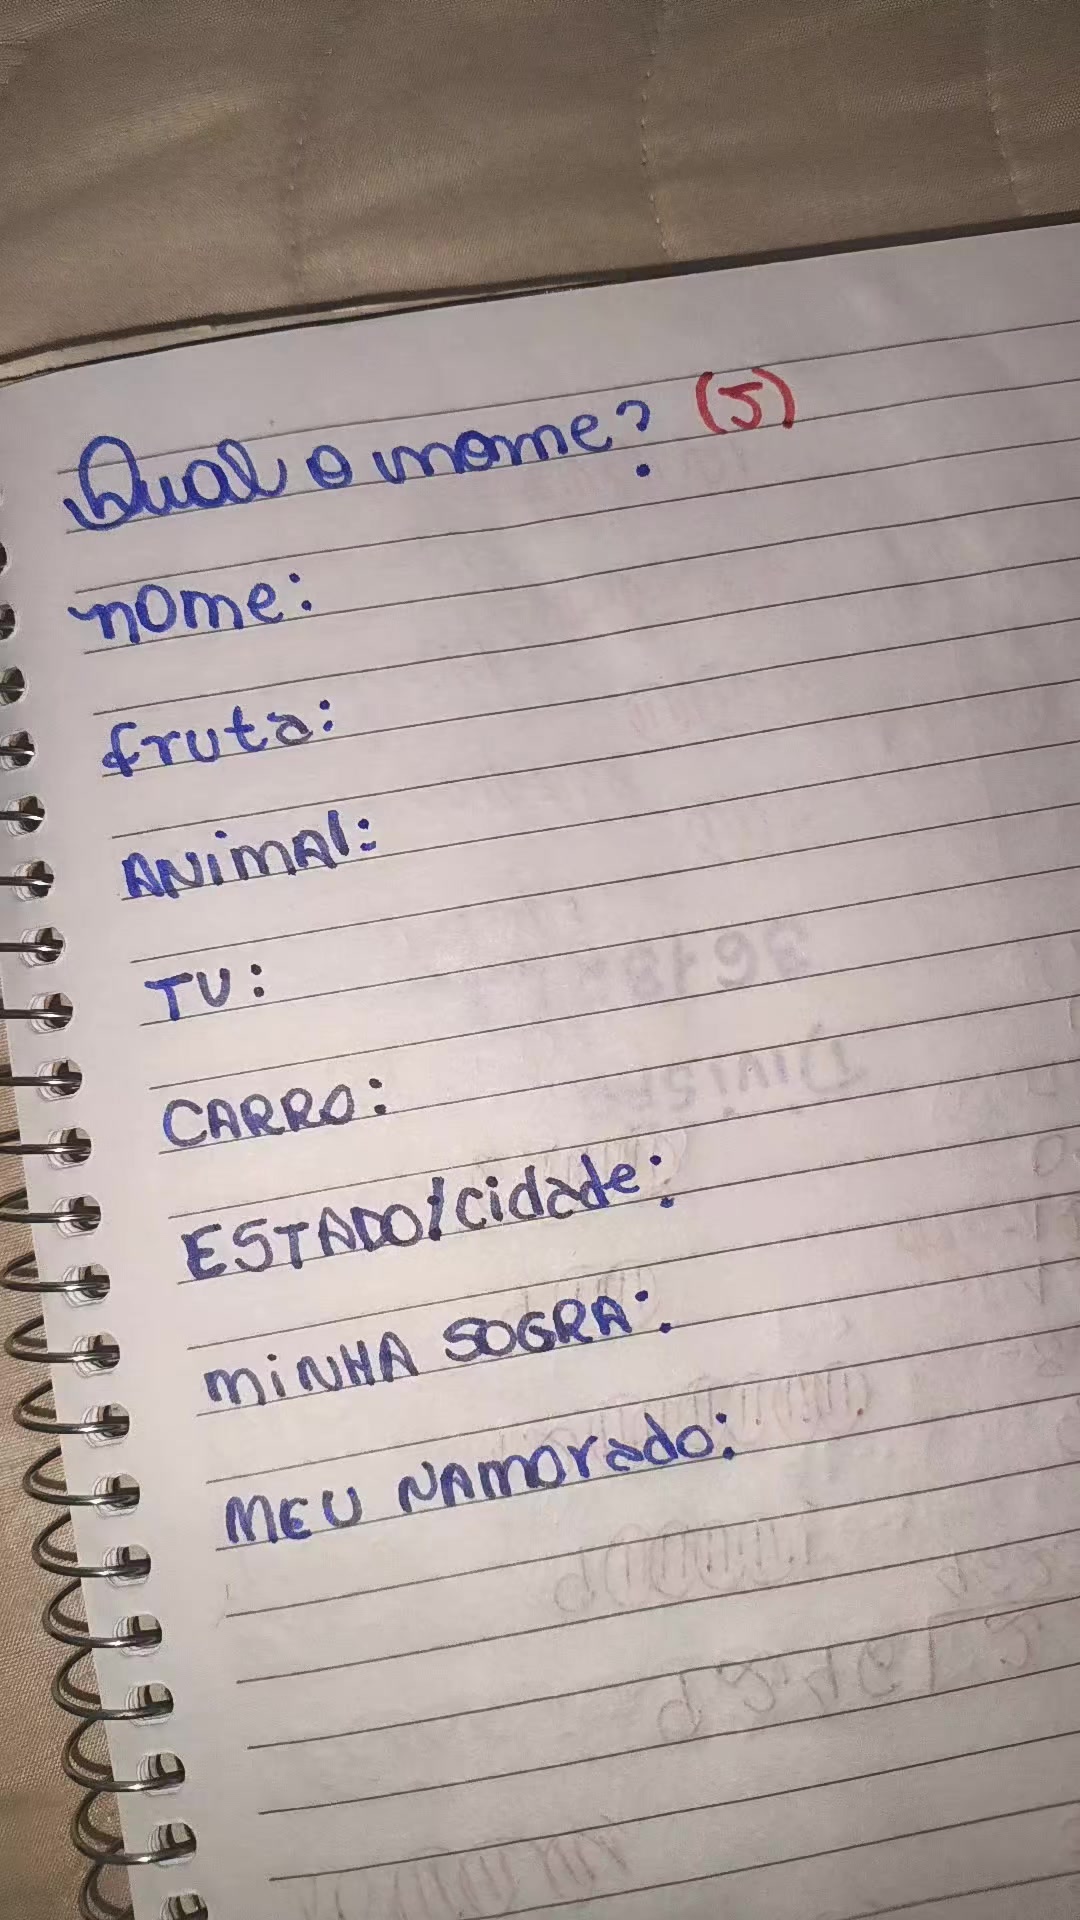 Qual o nome? (J)
nome:
fruta:
ANiMAl:
TV:
CARRO:
ESTADO/cidade:
MiNHA SOGRA:
MEU NAMOrado: